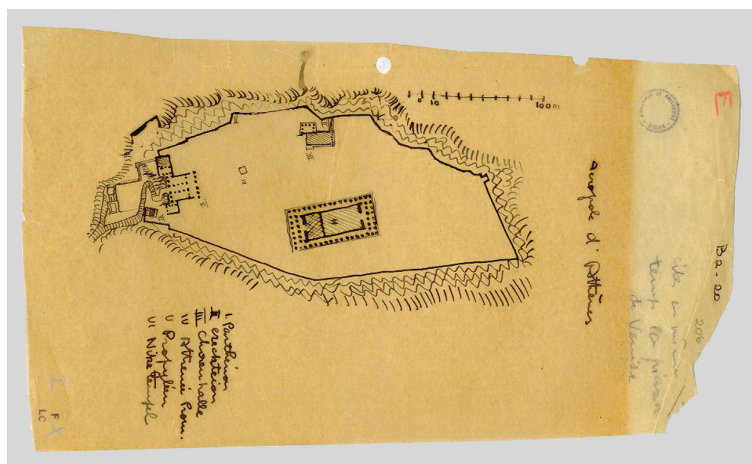 0 10 100 m
acropole d'Athènes
I. Parthénon
II erechteion
III Chorenhalle
IV Athenée Prom.
V Propyläen
VI Niketempel
IV
B2-20
206
temps la
de Venise
F
LC